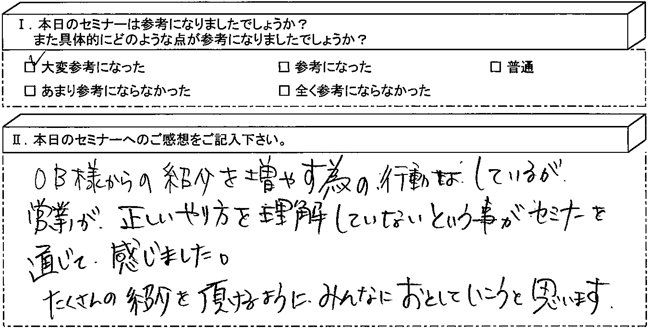 Ⅰ．本日のセミナーは参考になりましたでしょうか？
また具体的にどのような点が参考になりましたでしょうか？
☑ 大変参考になった □ 参考になった □ 普通
□ あまり参考にならなかった □ 全く参考にならなかった
Ⅱ．本日のセミナーへのご感想をご記入下さい。
OB様からの紹介を増やす為の行動は、しているが、
営業が、正しいやり方を理解していないという事がセミナーを
通じて、感じました。
たくさんの紹介を頂けるように、みんなにおとしていこうと思います。